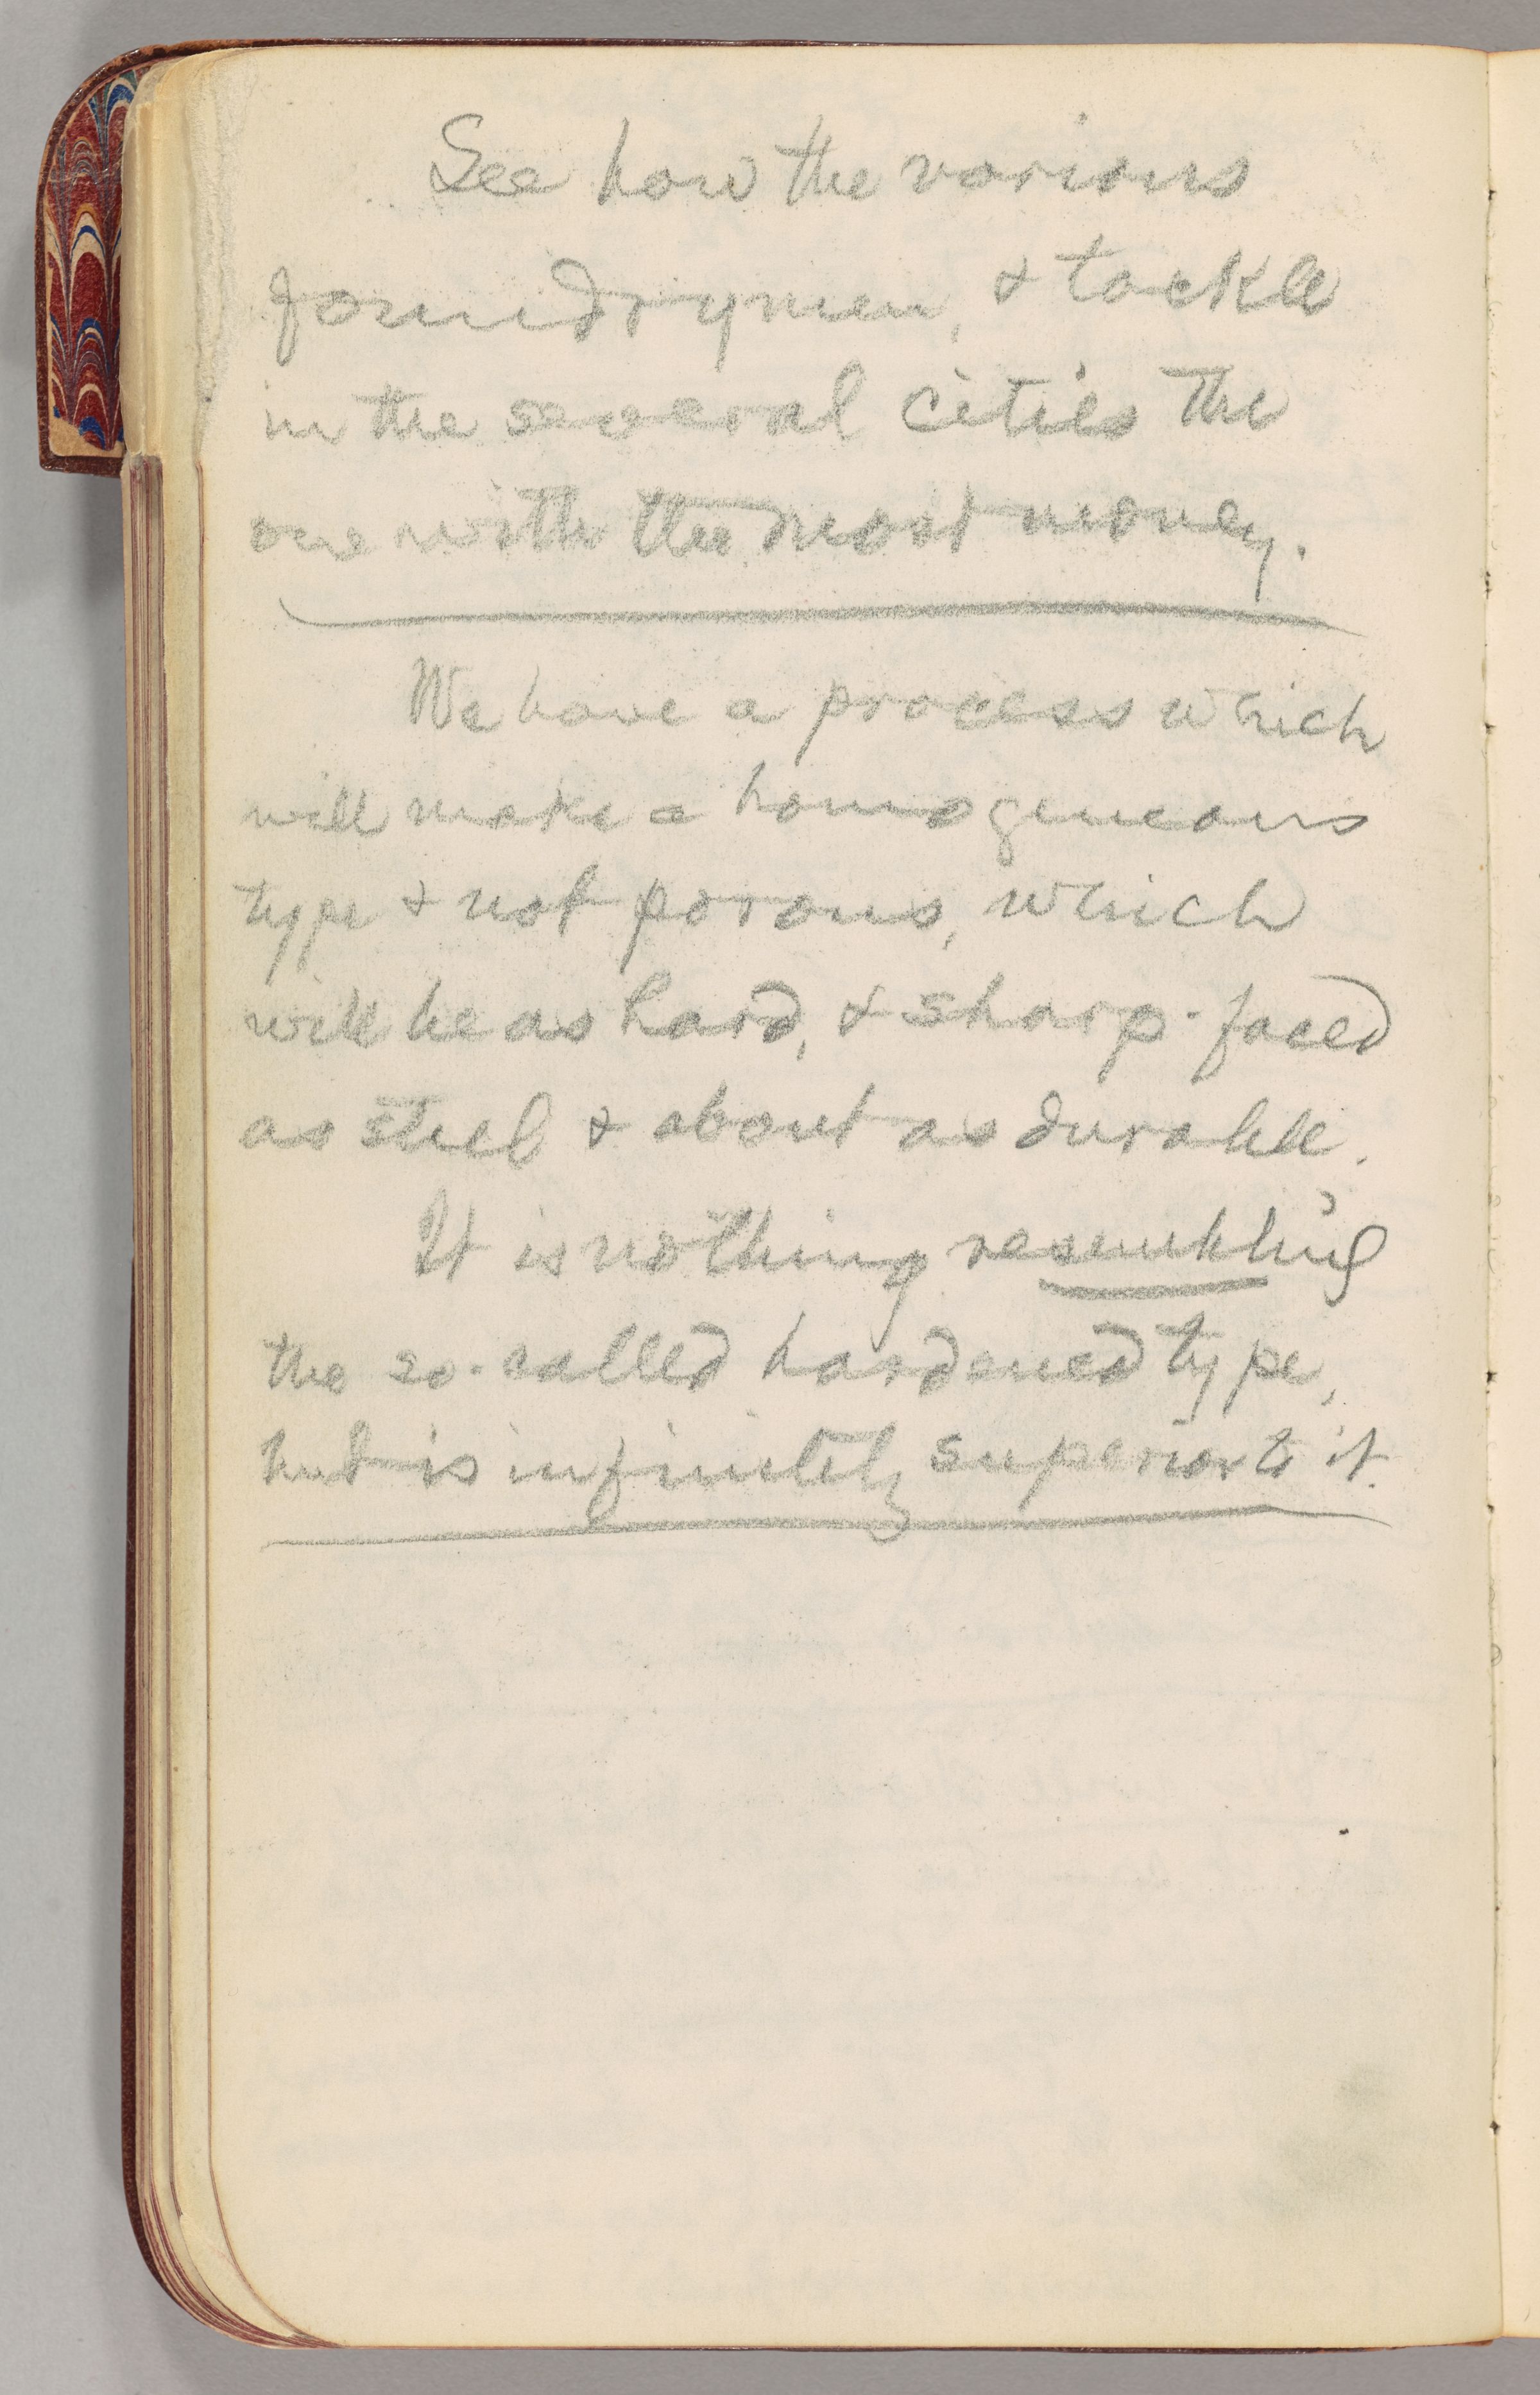 See how the various
foundrymen, & tackle
in the several cities the
one with the most money.
We have a process which
will make a homogeneous
type & not porous, which
will be as hard, & sharp-faced
as steel & about as durable.
It is nothing resembling
the so-called hardened type,
but is infinitely superior to it.